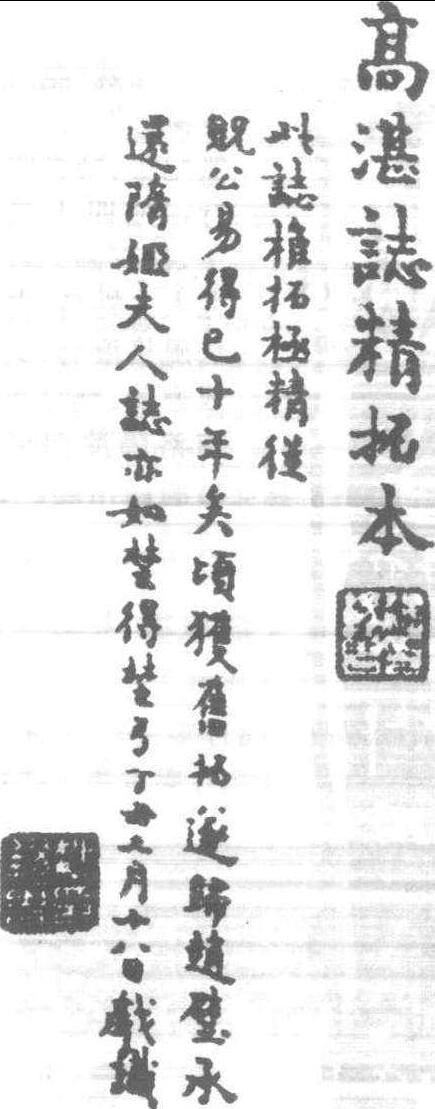 高湛誌精拓本
此誌椎拓極精從
貺公易得已十年矣頃獲舊拓遂歸趙璧承
還隋姬夫人誌亦如楚得楚弓丁丑月十八日戲識